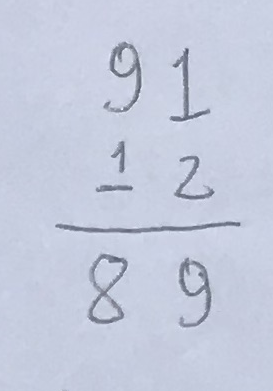 91
12
89